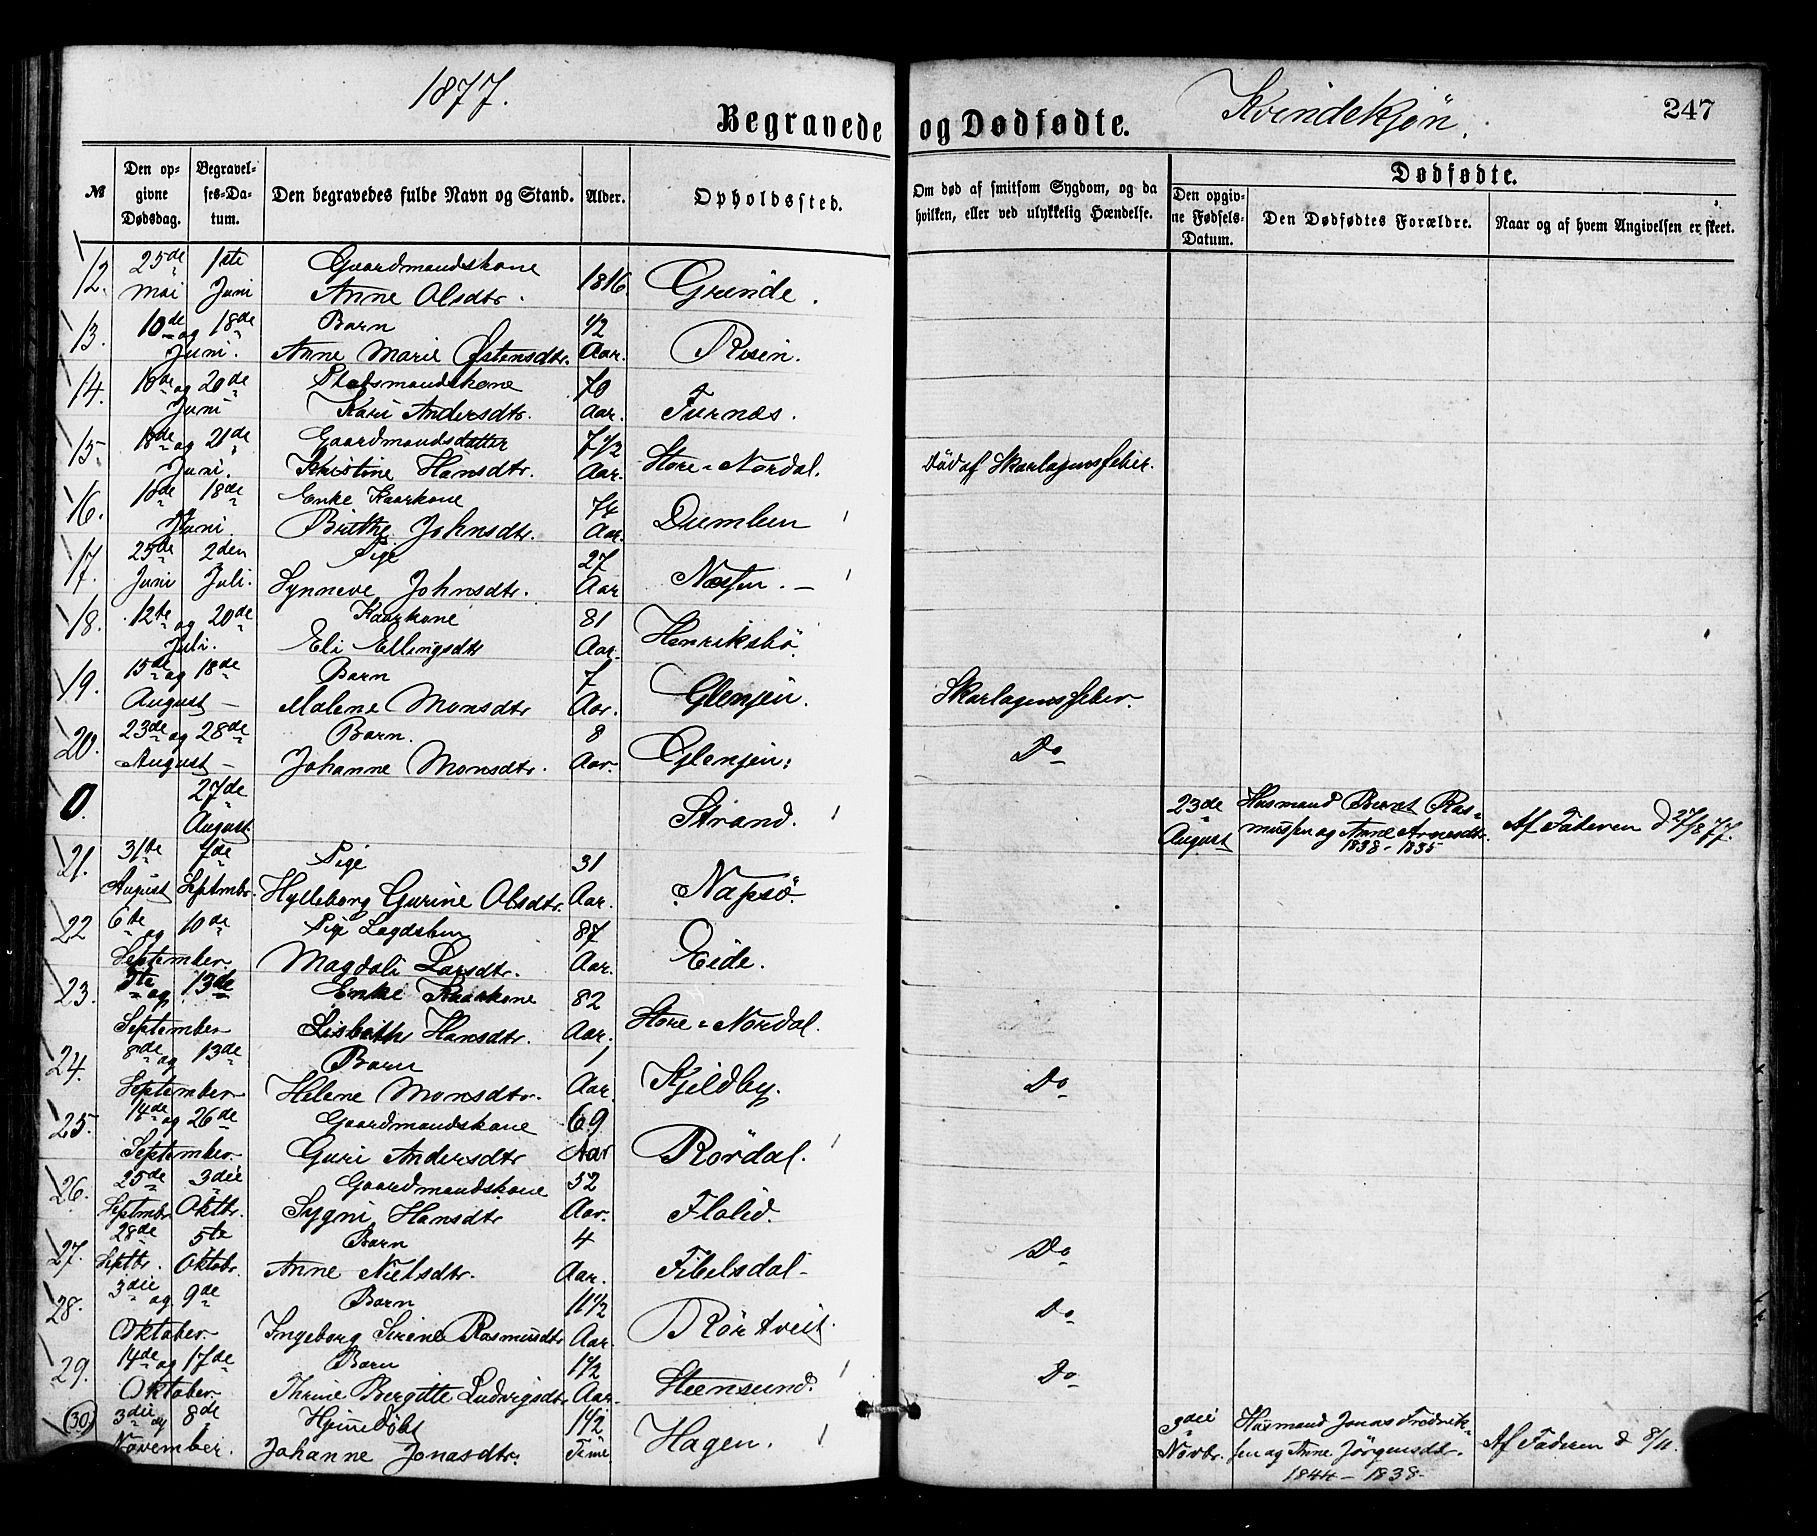 1877.
Begravede og Dødfødte.
Kvindekjøn.
247
№
Den opgivne Dødsdag.
Begravelses-Datum.
Den begravedes fulde Navn og Stand.
Alder.
Opholdssted.
Om død af smitsom Sygdom, og da hvilken, eller ved ulykkelig Hændelse.
Dødfødte.
Den opgivne Fødsels-Datum.
Den Dødfødtes Forældre.
Naar og af hvem Angivelsen er skeet.
12. 25de Mai 1ste Juni Gaardmandskone Anne Olsdtr. 1816. Grinde.
13. 10de og 18de Juni. Barn Anne Marie Østensdtr. 1/2 Aar. Risin.
14. 18de og 20de Juni Pladsmandskone Kari Andersdtr. 70 Aar. Furnæs.
15. 18de og 21de Juni. Gaardmandsdatter Kristine Hansdtr. 7 1/2 Aar. Store-Nordal. Død af Skarlagensfeber.
16. 10de 18de Juni Enke Kaarkone Brithe Johnsdtr. 74 Aar.
17. 25de Juni 2den Juli. Pige Synneve Johnsdtr. 27 Aar Næssen.
18. 12te og 20de Juli. Kaarkone Eli Ellingsdtr 81 Aar. Henriksbø.
19. 15de og 18de August Barn Malene Monsdtr 7 Aar. Glenjen. Skarlagensfeber.
20. 23de og 28de August Barn. Johanne Monsdtr. 8 Aar. Glenjen: Do
0. 27de August. Strand. 23de August Husmand Berent Rasmussen og Anne Arnesdtr. 1838 - 1835 Af Faderen d 27/8 77.
21. 31te August 7de Septmbr. Pige Hylleborg Gurine Olsdtr. 31 Aar. Napsø.
22 6te og 10de September Pige Lægdslem Magdali Larsdtr. 87 Aar. Eide.
23. 5te og 13de September Enke Kaarkone Lisbeth Hansdtr. 82 Aar. Store-Nordal.
24. 8de og 13de September Barn Helene Monsdtr. 1 Aar. Kjeldby. Do
25. 14de og 26de September Gaardmandskone Guri Andersdtr 69 Aar Rørdal.
26. 25de Septmbr 3die Oktbr. Gaardmandskone Sygni Hansdtr 52 Aar. Flolid.
27. 28de Septbr. 5te Oktobr. Barn Anne Nielsdtr. 4 Aar. Fibelsdal Do
28. 3die og 9de Oktober Barn Ingeborg Sirine Rasmusdtr 11 1/2 Aar. Rørtveit. Do
29. 14de og 17de Oktober Barn Thrine Bergitte Ludvigsdtr 1 1/2 Aar. Steensund. Do
30. 3die og 8de November. Hjemmedøbt Johanne Jonasdtr. 1/2 Time Hagen. 3die Novbr. Husmand Jonas Fredriksen og Anne Jørgensdtr 1844 - 1838 Af Faderen d 8/11.